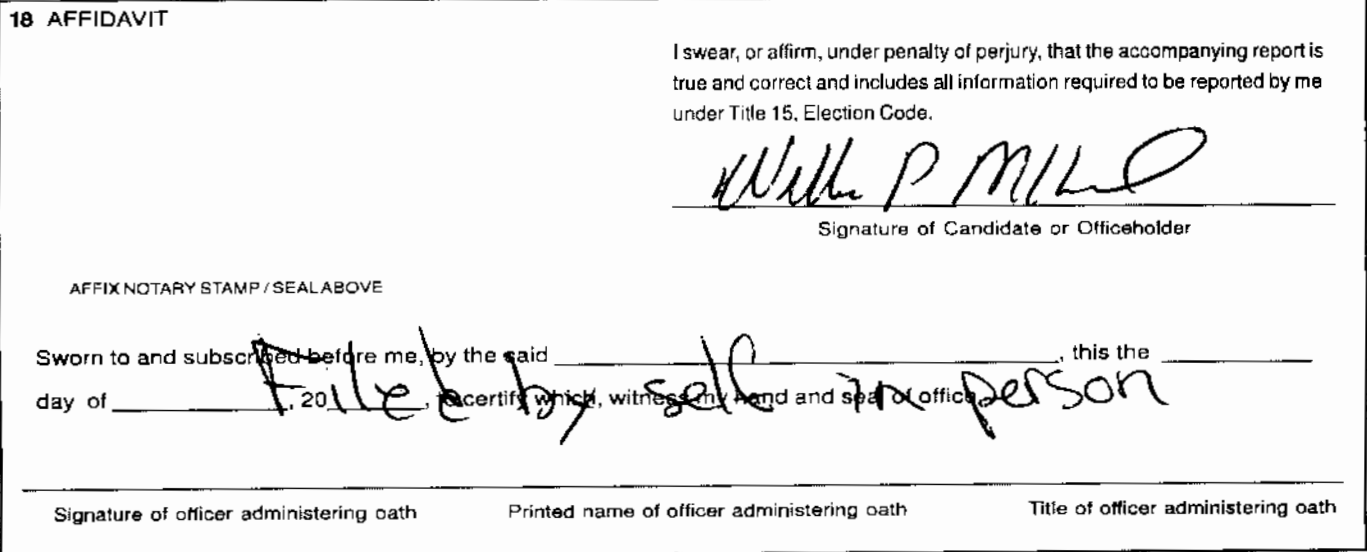 18 AFFIDAVIT
I swear, or affirm, under penalty of perjury, that the accompanying report is
true and correct and includes all information required to be reported by me
under Title 15, Election Code.
P
Signature of Candidate or Officeholder
AFFIX NOTARY STAMP / SEAL ABOVE
Sworn to and subscribed before me, by the said ____, this the ____
day of ____, 20____, to certify which, witness my hand and seal of office.
Filed by self in person
Signature of officer administering oath Printed name of officer administering oath Title of officer administering oath